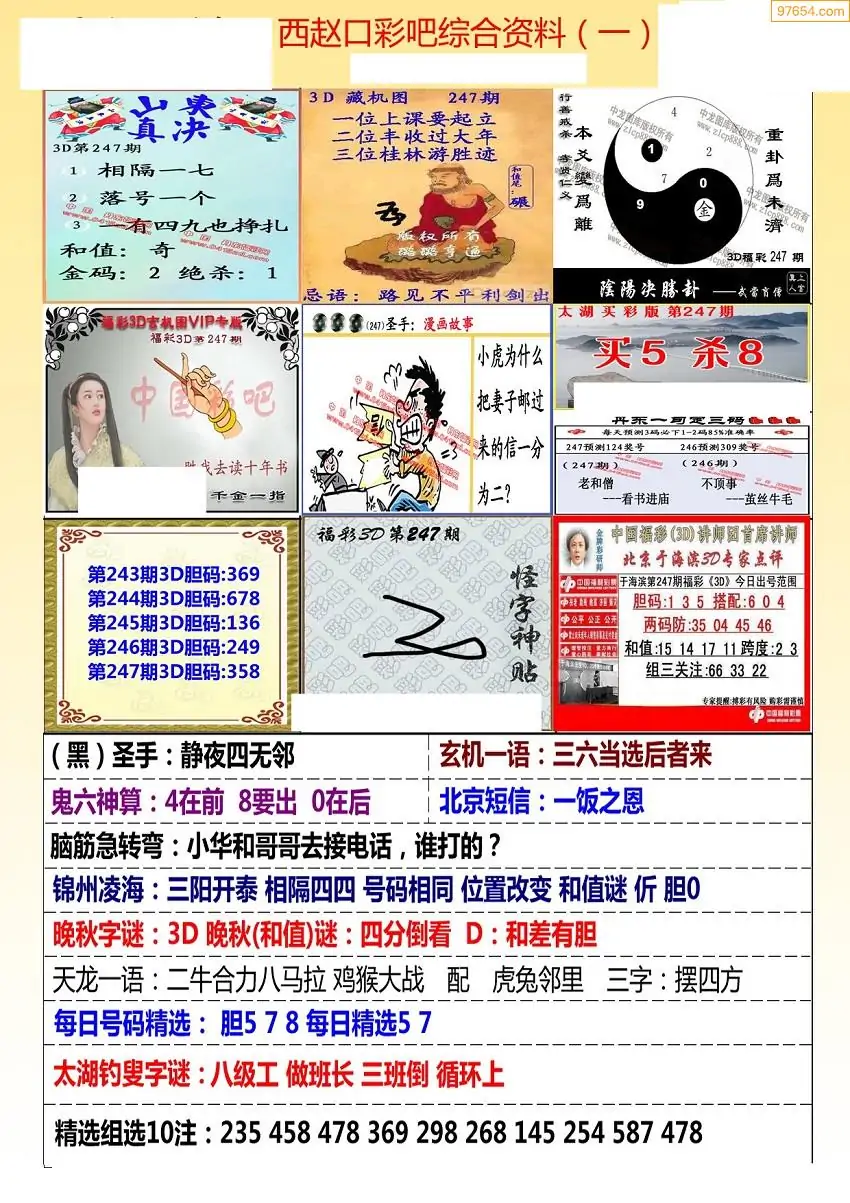 97654.com
西赵口彩吧综合资料（一）
山東
真决
3D第247期
1 相隔一七
2 落号一个
3 有四九也挣扎
和值：奇
金码：2 绝杀：1
3D 藏机图 247期
一位上课要起立
二位丰收过大年
三位桂林游胜迹
和值笔：碾
版权所有
璐璐亨通
忌语：路见不平利剑出
行善戒杀 孝贤仁义
本爻變爲離
重卦爲未濟
中龙图库版权所有
www.zlcp888.com
4
1
2
7
0
9
金
3D福彩 247 期
陰陽决勝卦 ——武當肖僧
真上人官
福彩3D玄机图VIP专版
福彩3D第247期
中国彩吧
胜我去读十年书
千金一指
(247)圣手：漫画故事
小虎为什么
把妻子邮过
来的信一分
为二？
太湖买彩版 第247期
买5 杀8
丹东一句定三码
每天预测3码必下1-2码85%准确率
247预测124奖号 246预测309奖号
（247期） （246期）
老和僧 不顶事
---看书进庙 ---茧丝牛毛
第243期3D胆码:369
第244期3D胆码:678
第245期3D胆码:136
第246期3D胆码:249
第247期3D胆码:358
福彩3D第247期
怪字神贴
金牌彩研师
中国福彩(3D)讲师团首席讲师
北京于海滨3D专家点评
中国福利彩票
公平 公正 公开
于海滨第247期福彩《3D》今日出号范围
胆码:1 3 5 搭配:6 0 4
两码防:35 04 45 46
和值:15 14 17 11 跨度:2 3
组三关注:66 33 22
专家提醒:搏彩有风险 购彩需谨慎
中国福利彩票
（黑）圣手：静夜四无邻
玄机一语：三六当选后者来
鬼六神算：4在前 8要出 0在后
北京短信：一饭之恩
脑筋急转弯：小华和哥哥去接电话，谁打的？
锦州凌海：三阳开泰 相隔四四 号码相同 位置改变 和值谜 伒 胆0
晚秋字谜：3D 晚秋(和值)谜：四分倒看 D：和差有胆
天龙一语：二牛合力八马拉 鸡猴大战 配 虎兔邻里 三字：摆四方
每日号码精选： 胆5 7 8 每日精选5 7
太湖钓叟字谜：八级工 做班长 三班倒 循环上
精选组选10注：235 458 478 369 298 268 145 254 587 478